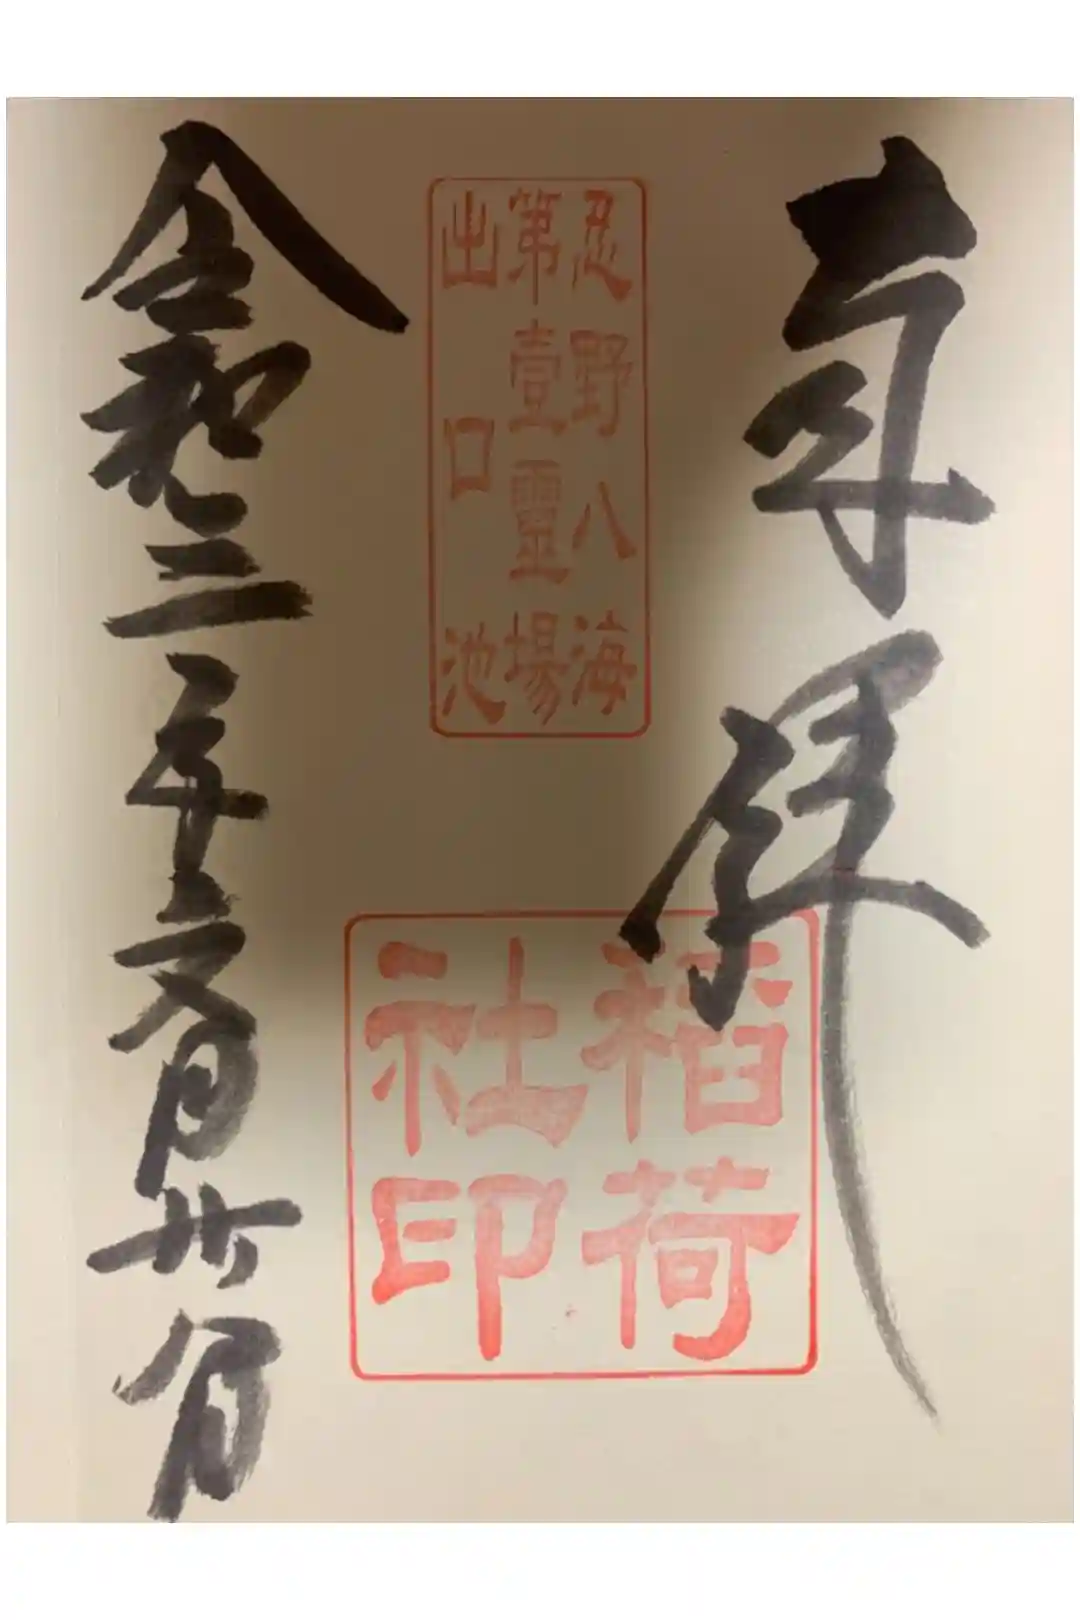 奉拝
忍野八海
第壹靈場
出口池
稲荷
社印
令和三年六月廿日